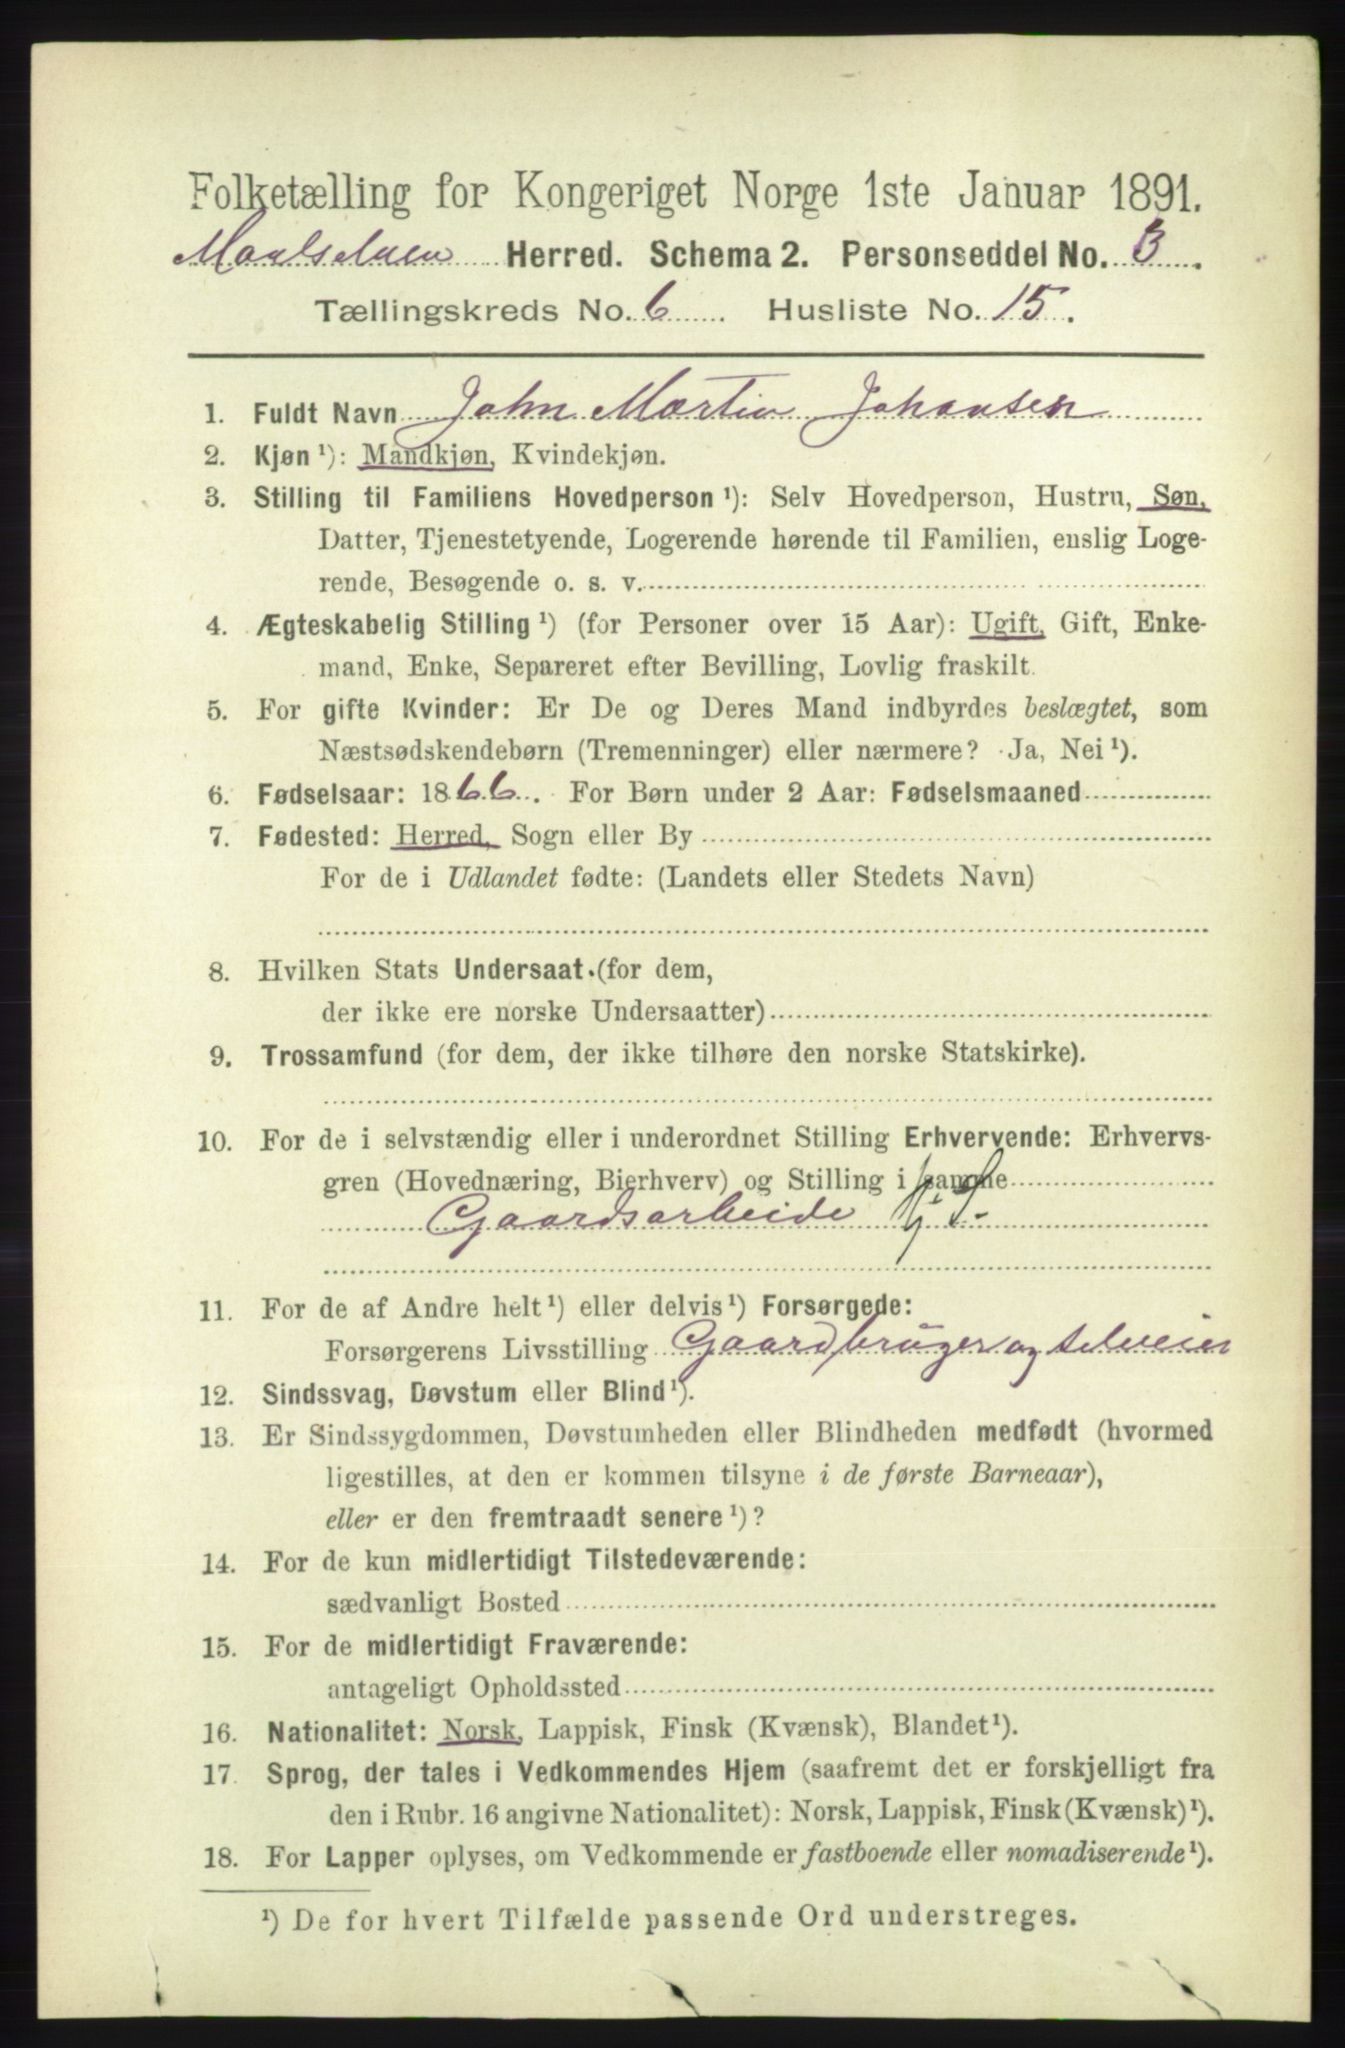 Folketælling for Kongeriget Norge 1ste Januar 1891.
Maalselven Herred. Schema 2. Personseddel No. 3.
Tællingskreds No. 6. Husliste No. 15.
1. Fuldt Navn John Martin Johansen
2. Kjøn ¹): Mandkjøn, Kvindekjøn.
3. Stilling til Familiens Hovedperson ¹): Selv Hovedperson, Hustru, Søn,
Datter, Tjenestetyende, Logerende hørende til Familien, enslig Loge-
rende, Besøgende o. s. v.
4. Ægteskabelig Stilling ¹) (for Personer over 15 Aar): Ugift, Gift, Enke-
mand, Enke, Separeret efter Bevilling, Lovlig fraskilt.
5. For gifte Kvinder: Er De og Deres Mand indbyrdes beslægtet, som
Næstsødskendebørn (Tremenninger) eller nærmere? Ja, Nei ¹).
6. Fødselsaar: 1866. For Børn under 2 Aar: Fødselsmaaned
7. Fødested: Herred, Sogn eller By
For de i Udlandet fødte: (Landets eller Stedets Navn)
8. Hvilken Stats Undersaat (for dem,
der ikke ere norske Undersaatter)
9. Trossamfund (for dem, der ikke tilhøre den norske Statskirke).
10. For de i selvstændig eller i underordnet Stilling Erhvervende: Erhvervs-
gren (Hovednæring, Bierhverv) og Stilling i samme
Gaardsarbeide
11. For de af Andre helt ¹) eller delvis ¹) Forsørgede:
Forsørgerens Livsstilling Gaardbruger og selveier
12. Sindssvag, Døvstum eller Blind ¹).
13. Er Sindssygdommen, Døvstumheden eller Blindheden medfødt (hvormed
ligestilles, at den er kommen tilsyne i de første Barneaar),
eller er den fremtraadt senere ¹)?
14. For de kun midlertidigt Tilstedeværende:
sædvanligt Bosted
15. For de midlertidigt Fraværende:
antageligt Opholdssted
16. Nationalitet: Norsk, Lappisk, Finsk (Kvænsk), Blandet ¹).
17. Sprog, der tales i Vedkommendes Hjem (saafremt det er forskjelligt fra
den i Rubr. 16 angivne Nationalitet): Norsk, Lappisk, Finsk (Kvænsk) ¹).
18. For Lapper oplyses, om Vedkommende er fastboende eller nomadiserende ¹).
¹) De for hvert Tilfælde passende Ord understreges.